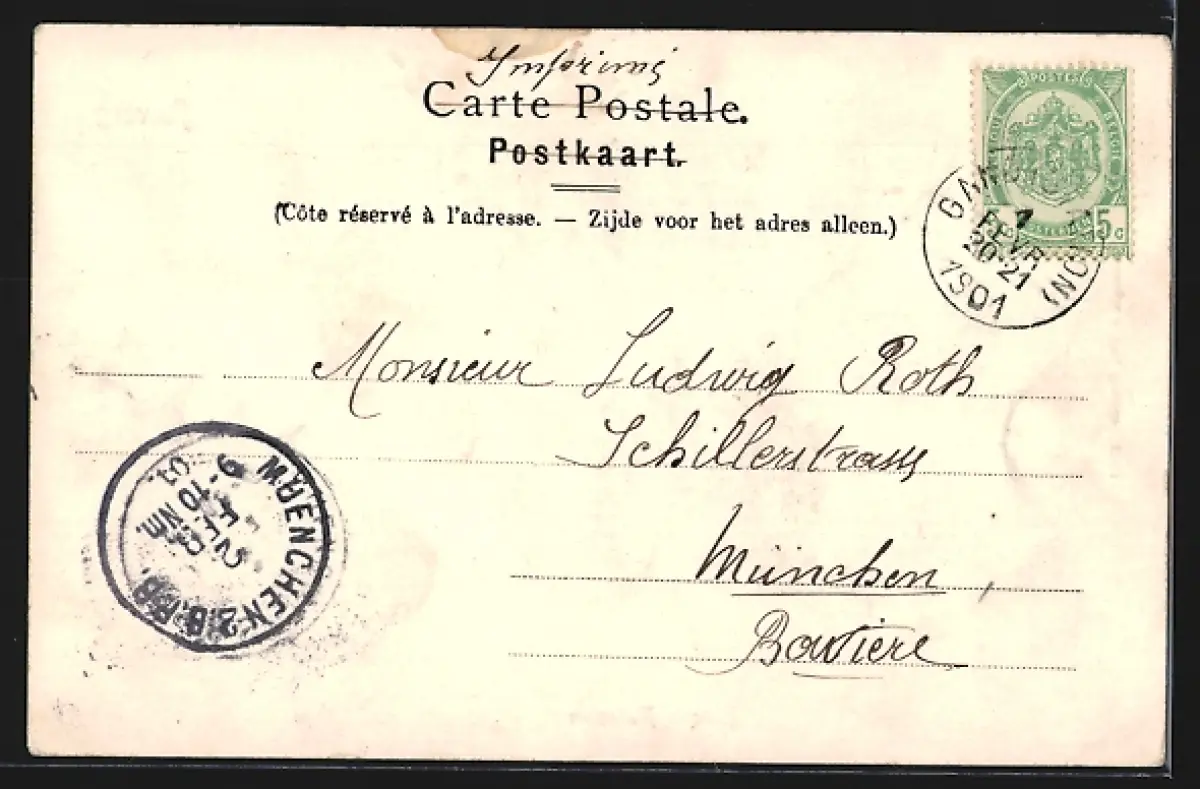 Imprimé
Carte Postale.
Postkaart.
(Côte réservé à l'adresse. — Zijde voor het adres alleen.)
POSTES
5 C
GAND
7
FEVR
20-21
1901
Monsieur Ludwig Roth
Schillerstrasse
München,
Bavière
MUENCHEN 2 B.P.
9.
FEB
10 NM.
01